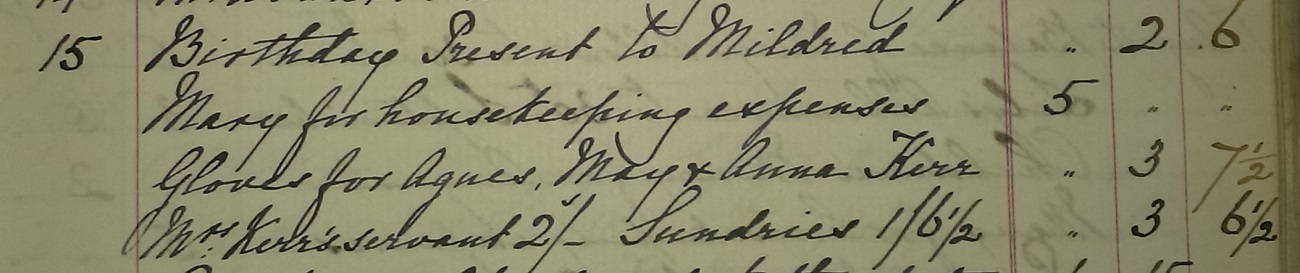 15 Birthday Present to Mildred " 2 6
Mary for housekeeping expenses 5 " "
Gloves for Agnes, May & Anna Kerr " 3 7½
Mrs Kerr's servant 2/- Sundries 1/6½ " 3 6½